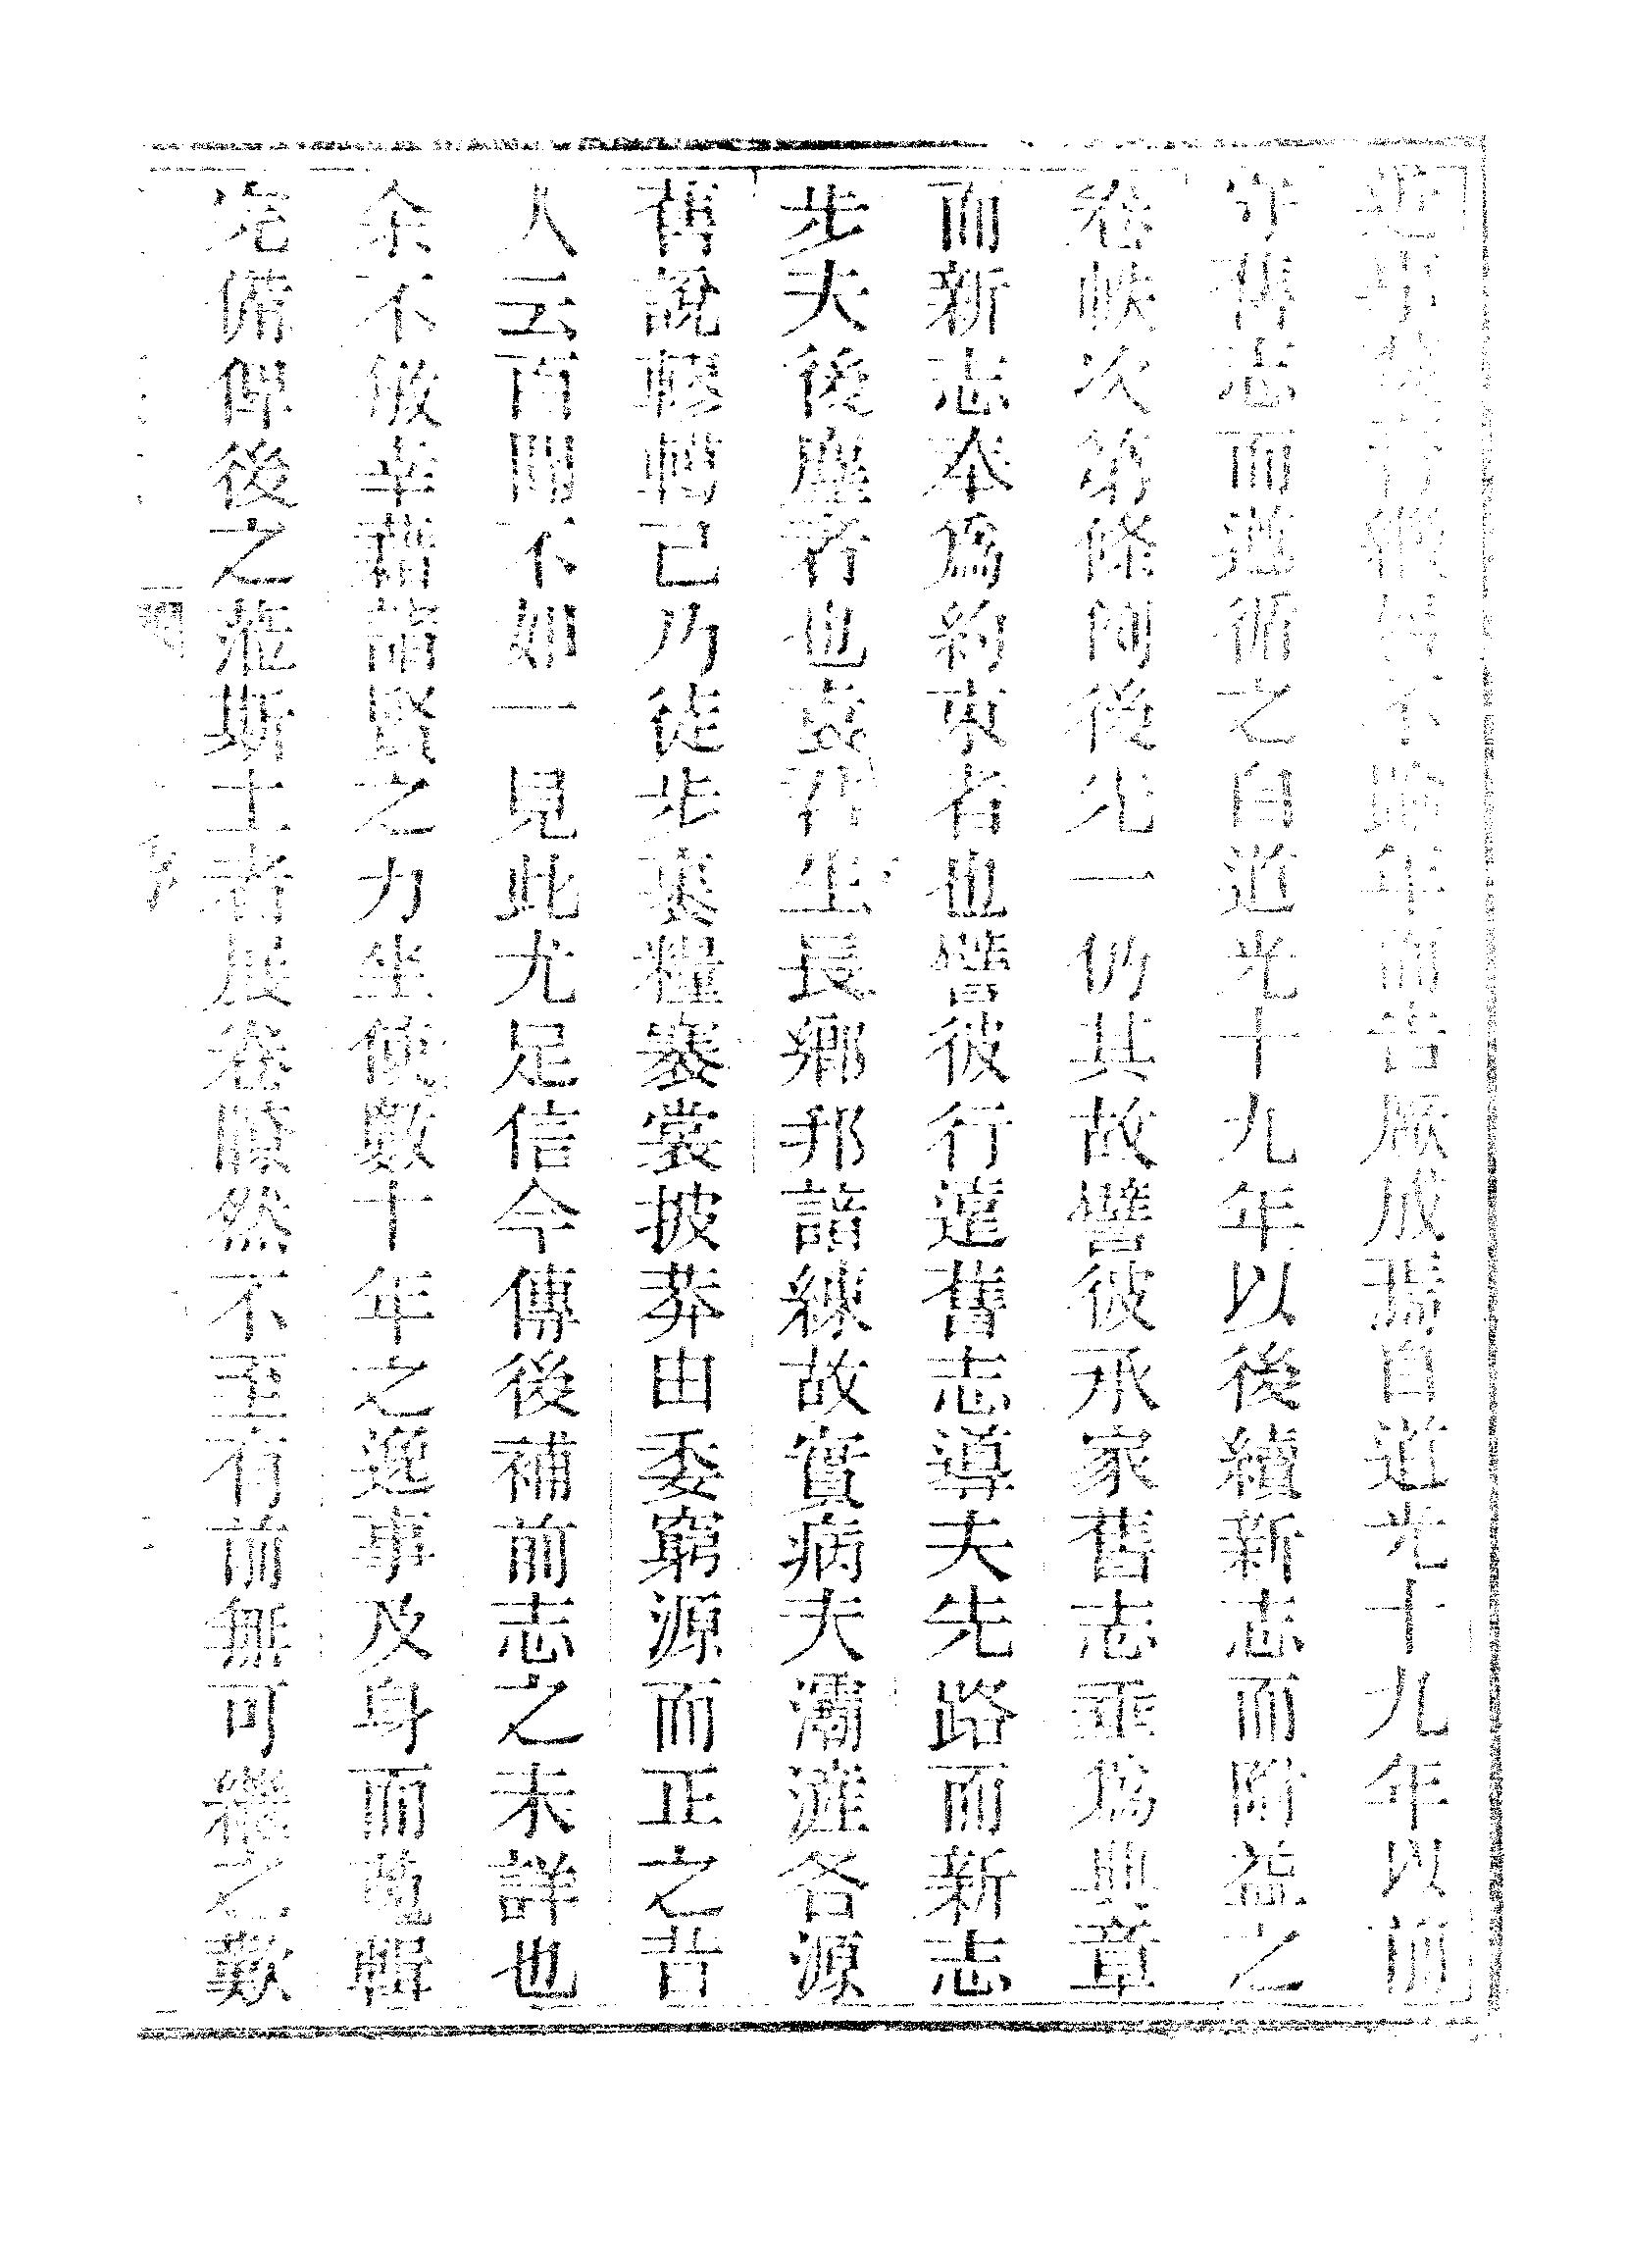 年而告厥成焉自道光十九年以前
守舊志而遵循之自道光十九年以後續新志而附益之
卷帙次第條例後先一仍其故譬彼承家舊志垂為典章
而新志奉為約束者也譬彼行遠舊志導夫先路而新志
步夫後塵者也袁君生長鄉邦諳練故實病夫灞滻各源
舊說轇轕已乃徒步裹糧褰裳披莽由委窮源而正之昔
人云百聞不如一見此尤足信今傳後補前志之未詳也
余不敏幸藉諸賢之力坐使數十年之逸事及身而蒐輯
完備俾後之蒞斯土者展卷瞭然不至有前無可繼之歎